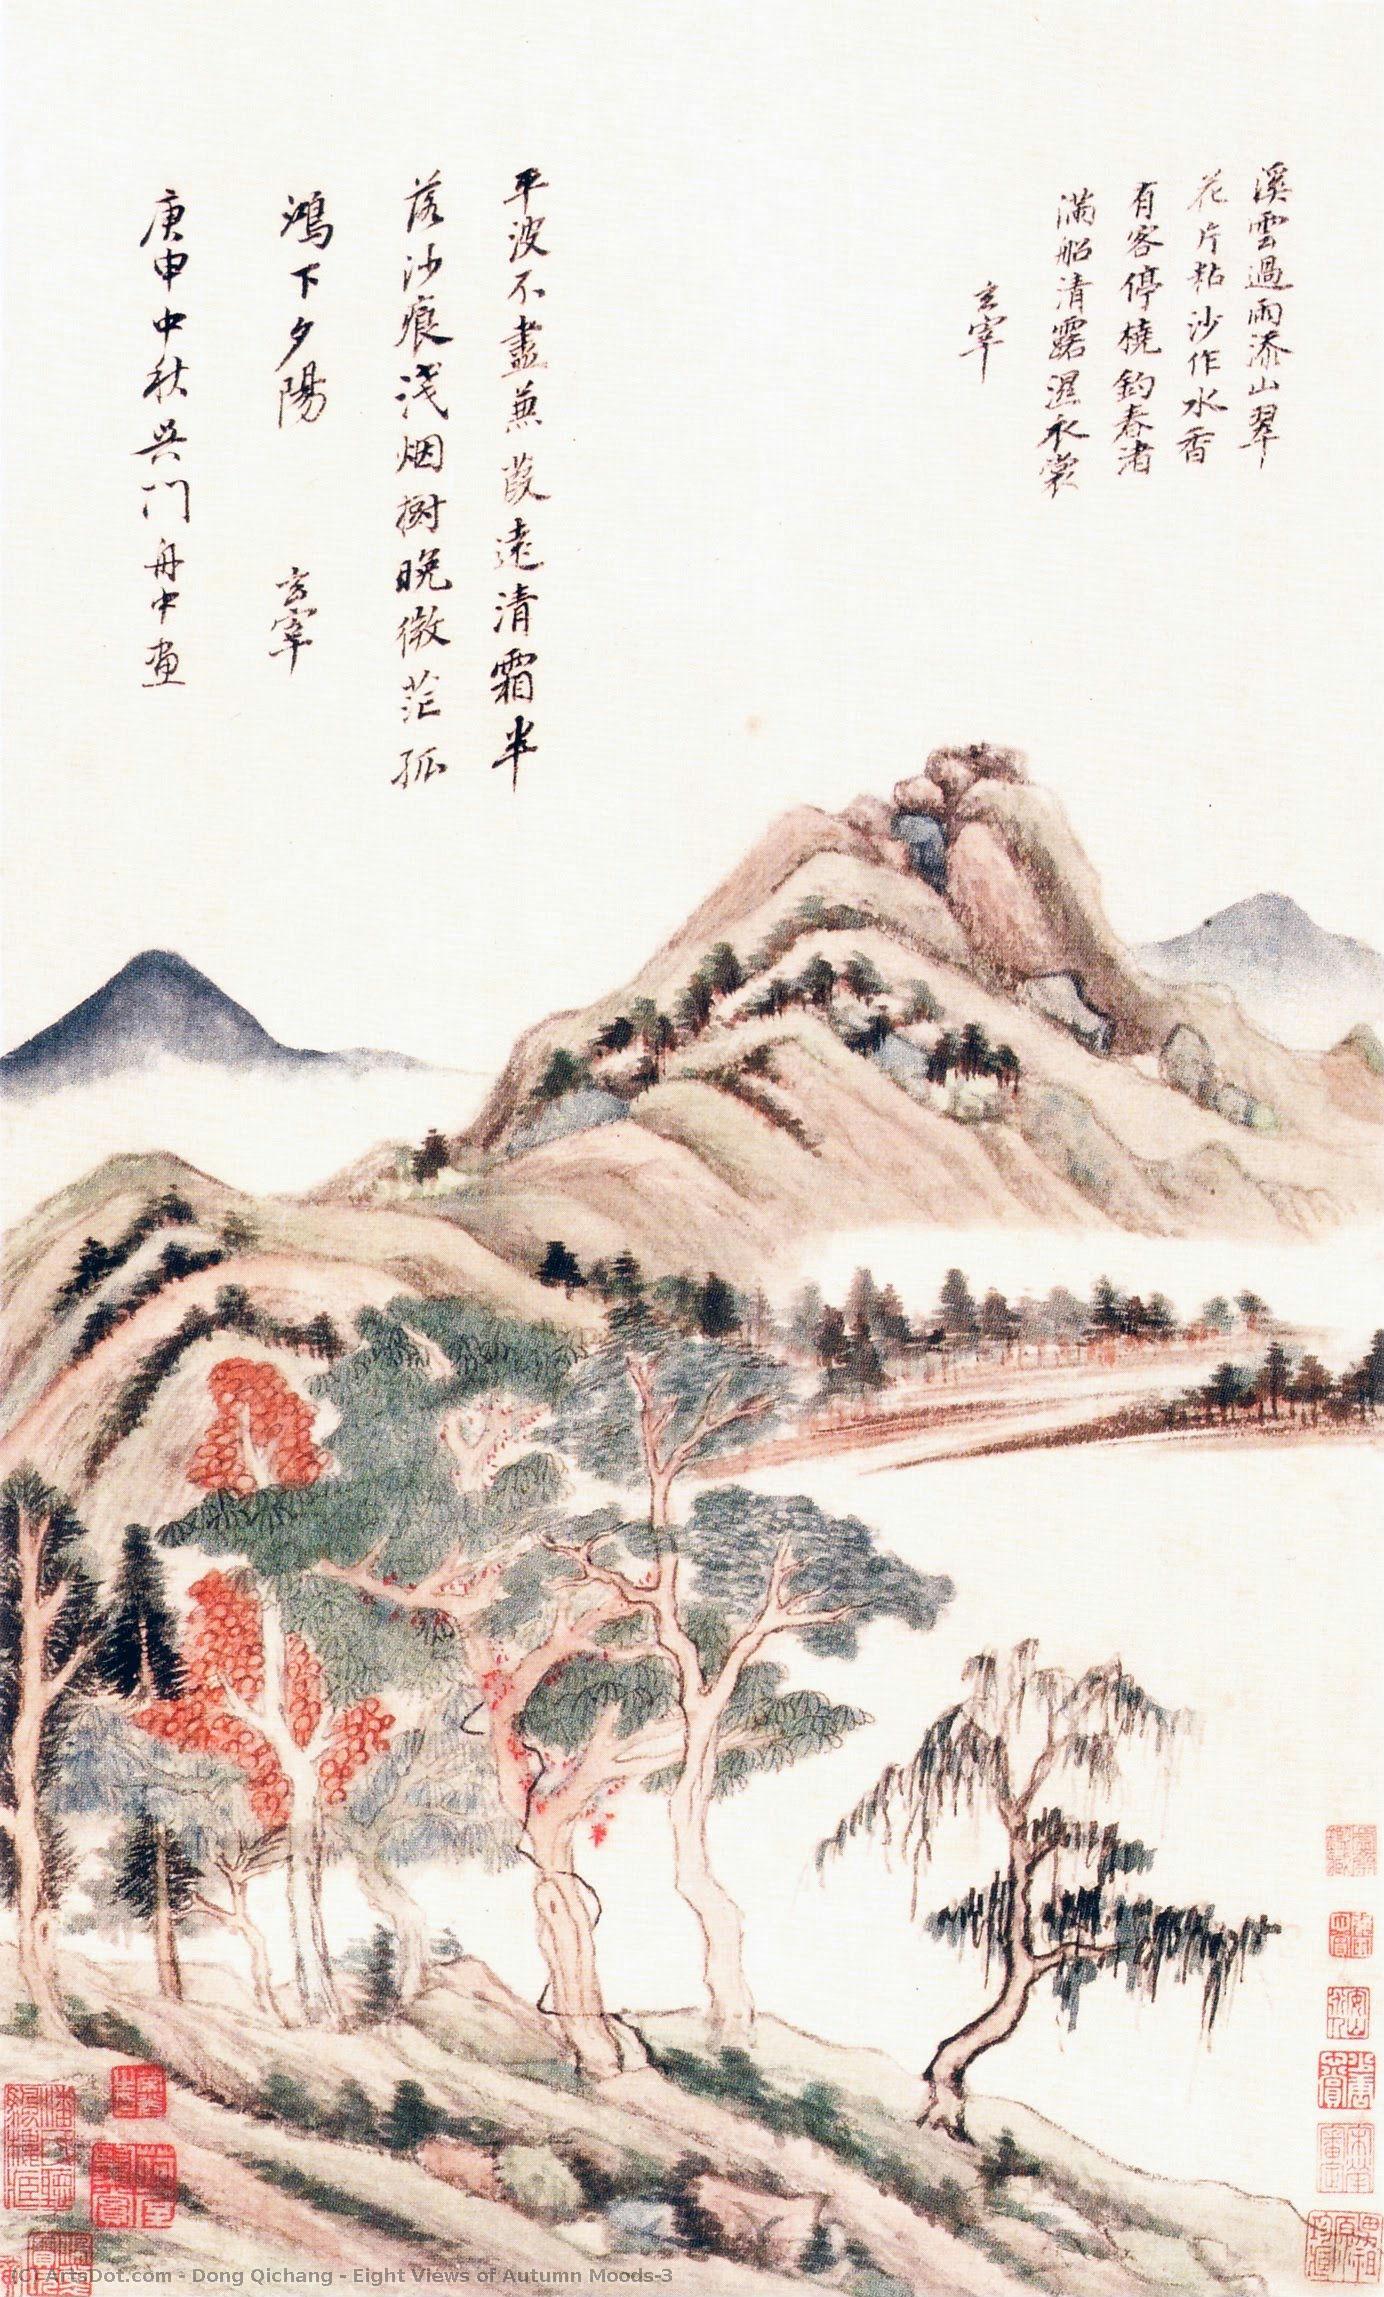 溪雲過雨添山翠
花片粘沙作水香
有客停橈釣春渚
滿船清露濕衣裳
玄宰
平波不盡蒹葭遠清霜半
落沙痕淺烟樹晚微茫孤
鴻下夕陽
玄宰
庚申中秋吳門舟中畫
(C) ArtsDot.com - Dong Qichang - Eight Views of Autumn Moods-3